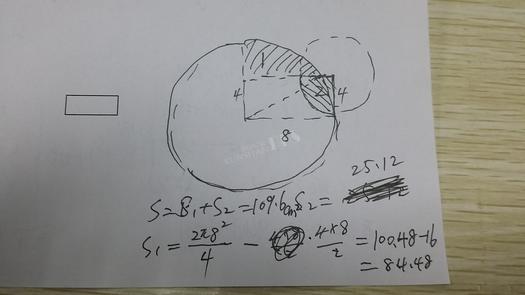 1
4
2
4
8
25.12
S=S₁+S₂=109.6cm² S₂=
S₁= 2π8²/4 - · 4×8/2 =100.48-16
=84.48